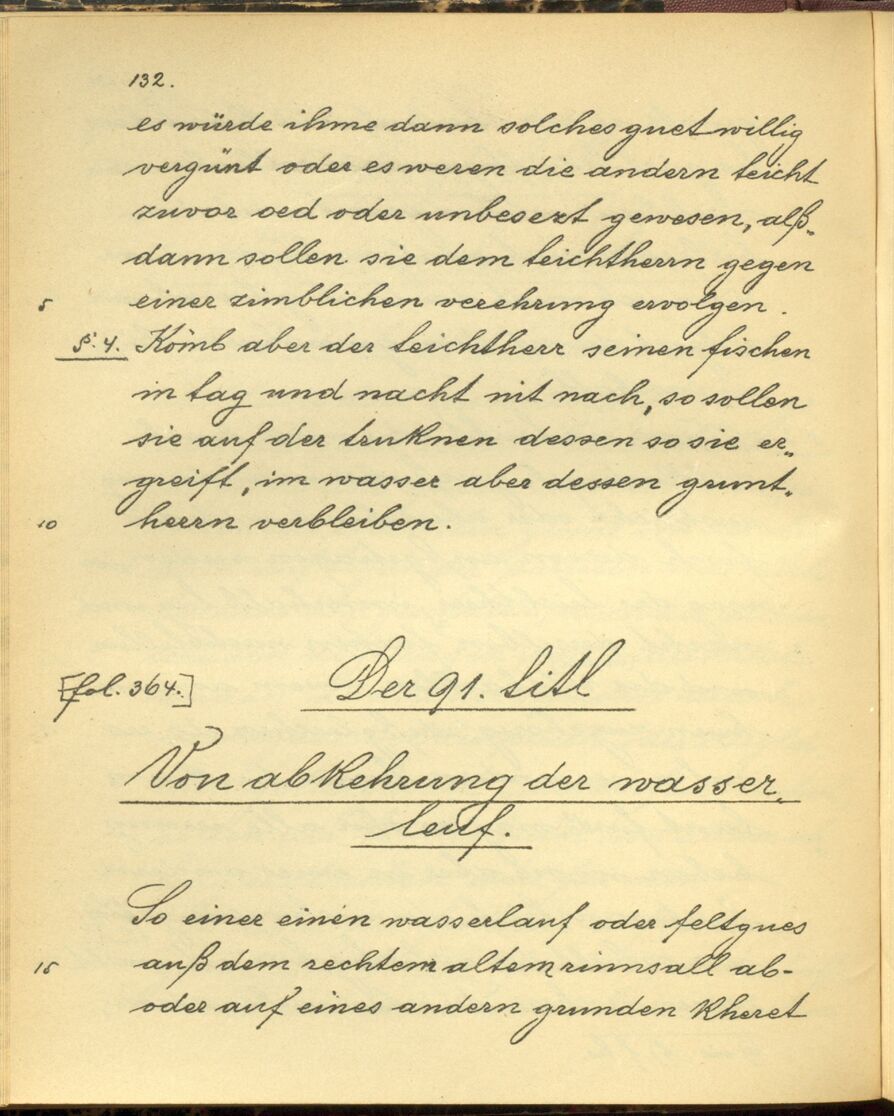 132.
es würde ihme dann solches guet willig
vergünt oder es weren die andern teicht
zuvor oed oder unbesezt gewesen, alß„
dann sollen sie dem teichtherrn gegen
5 einer zimblichen verehrung ervolgen.
§. 4. Kömb aber der teichtherr seinen fischen
in tag und nacht nit nach, so sollen
sie auf der truknen dessen so sie er„
greift, im wasser aber dessen grunt„
10 herrn verbleiben.
[fol. 364.] Der 91. titl
Von abkehrung der wasser„
leuf.
So einer einen wasserlauf oder feltgues
15 auß dem rechtem altem rinnsall ab-
oder auf eines andern grunden kheret